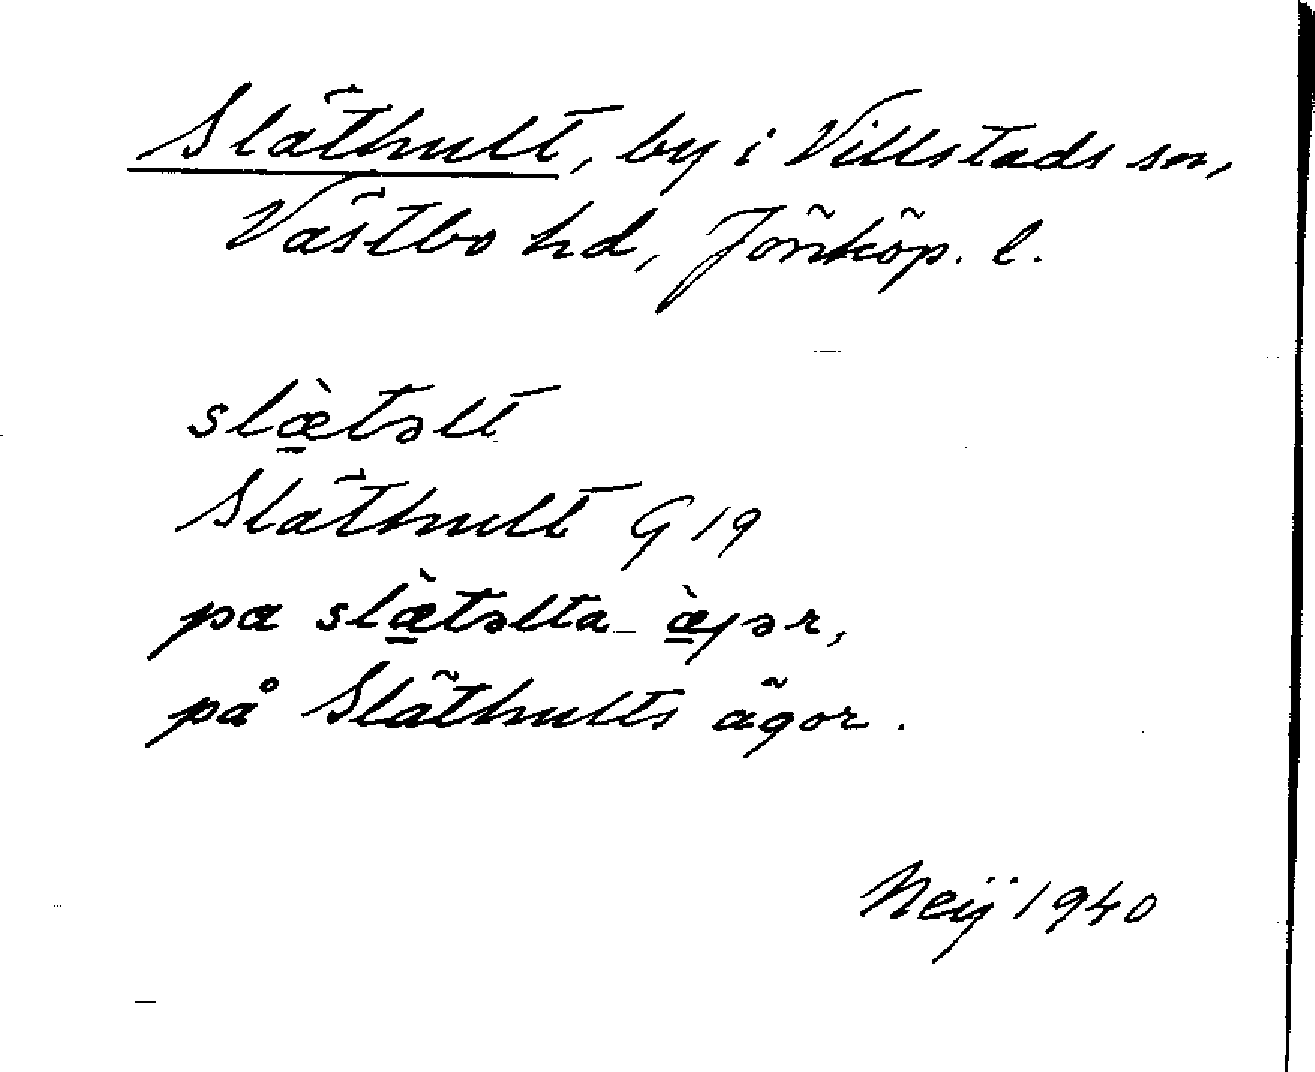 Släthult, by i Villstads sn,
Västbo hd, Jönköp. l.
slæ̱̀təlt
Släthult G 19
pa slæ̱̀təlta æ̱̀jər,
på Släthults ägor.
Neij 1940